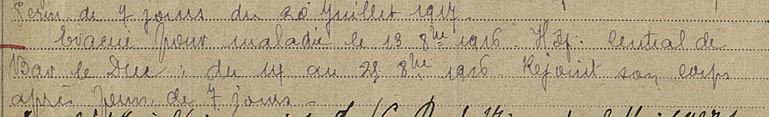 Perm de 7 jours du 20 Juillet 1917.
Evacué pour maladie le 13 8bre 1916. Hôp. Central de
Bar le Duc : du 14 au 28 8bre 1916. Rejoint son corps
après perm. de 7 jours -